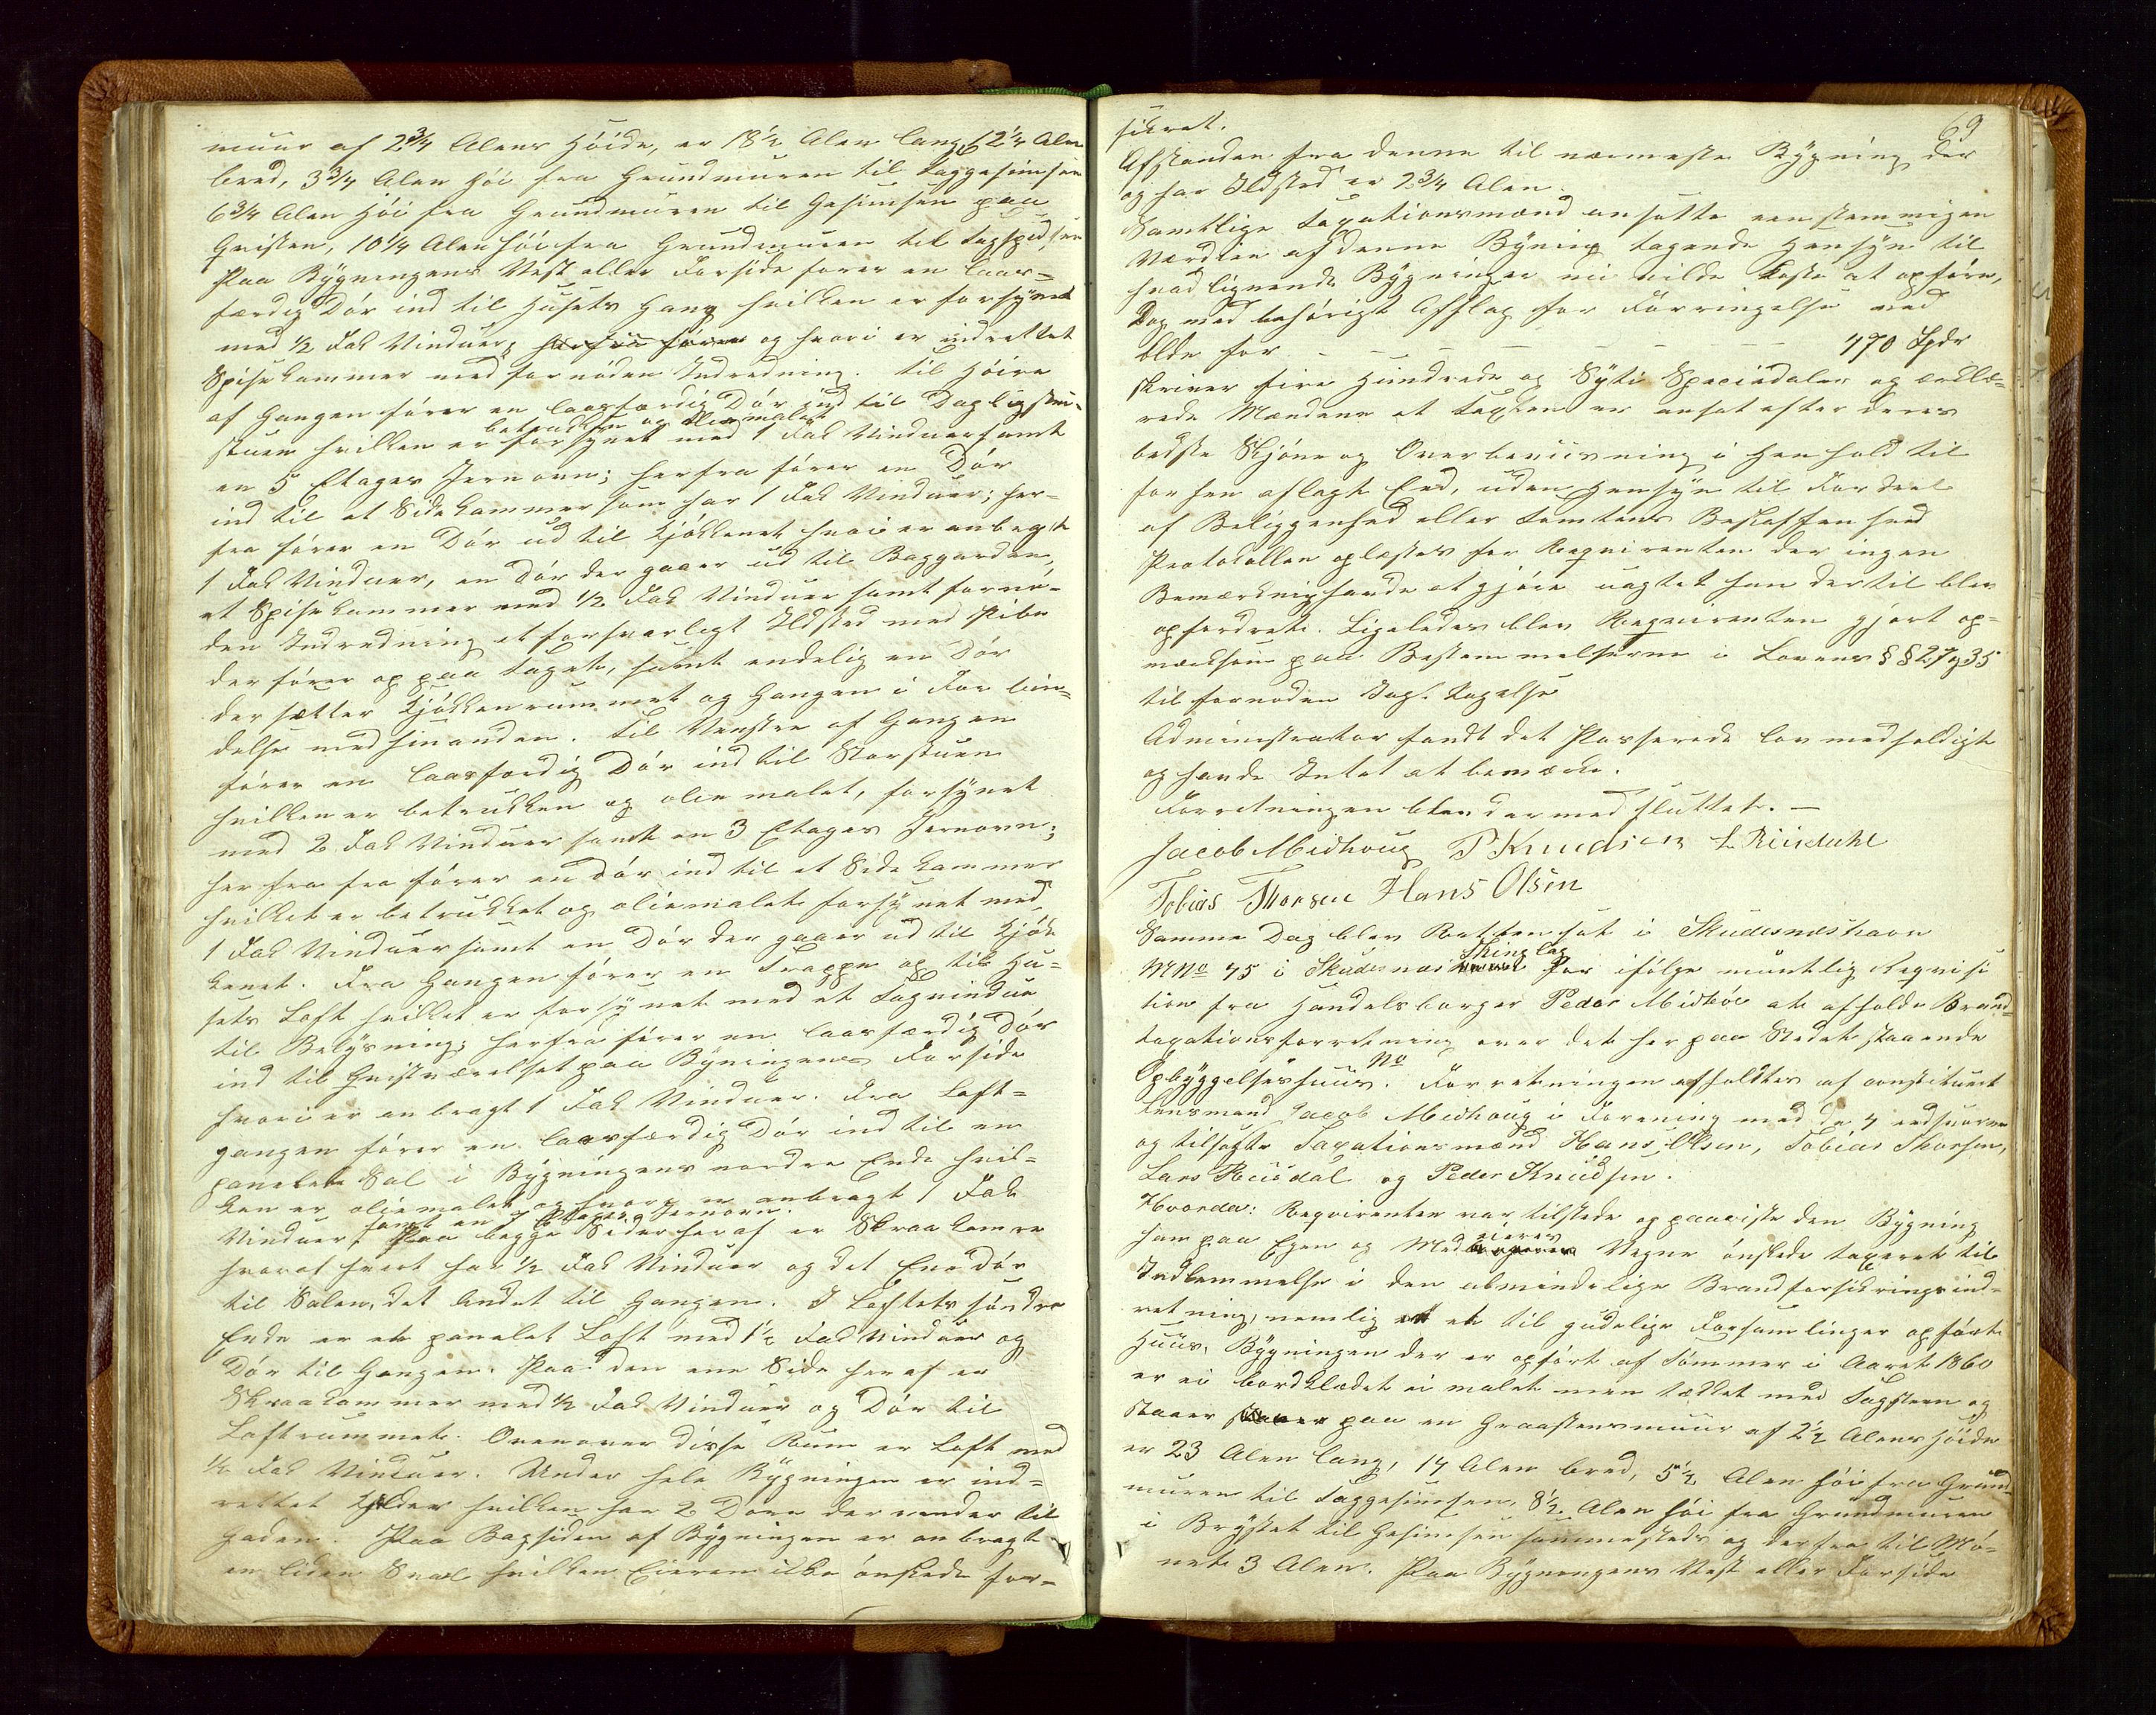 muur af 2 3/4 Alens Höide, er 18 1/2 Alen lang, 12 1/4 Alen
bred, 3 3/4 Alen höi fra Grundmuren til Taggesimsen
6 3/4 Alen höi fra Grundmuren til Gesimsen paa
Qvisten, 10 1/4 Alen höi fra Grundmuren til Tagspidsen
Paa Bygningens Vest eller Forside förer en laas-
færdig Dör ind til Husets Gang hvilken er forsynet
med 1/2 Fag Vinduer, og hvori er indrettet
Spisekammer med fornöden Indredning. Til Höire
af Gangen förer en laasfærdig Dör ind til Dagligstue-
betrukken og oliemalet
stuen hvilken er forsynet med 1 Fag Vinduer samt
en 5 Etages Jernovn; herfra förer en Dör
ind til et Sidekammer som har 1 Fag Vinduer; her-
fra förer en Dör ud til Kjökkenet hvori er anbragt
1 Fag Vinduer, en Dör der gaaer ud til Baggaarden,
et Spisekammer med 1/2 Fag Vinduer samt fornö-
den Indredning et forsvarligt Ildsted med Pibe
der förer op paa Taget, samt endelig en Dör
der sætter Kjökkenrummet og Gangen i Forbin-
delse med hinanden. Til Venstre af Gangen
förer en laasfærdig Dör ind til Storstuen
hvilken er betrukken og oliemalet, forsynet
med 2 Fag Vinduer samt en 3 Etages Jernovn;
her fra fra förer en Dör ind til et Sidekammer
hvilket er betrukket og oliemalet forsynet med
1 Fag Vinduer samt en Dör der gaaer ud til Kjök
kenet. Fra Gangen förer en Trappe op til Hu-
sets Loft hvilket er forsynet med et Tagvindue
til Belysning; herfra förer en laasfærdig Dör
ind til Qvistværelset paa Bygningens Forside
hvori er anbragt 1 Fag Vinduer. Fra Loft-
gangen förer en laasfærdig Dör ind til en
panelet Sal i Bygningens nordre Ende hvil-
ken er oliemalet og hvori er anbragt 1 Fag
samt en Etages Jernovn.
Vinduer. Paa begge Sider heraf er Skraakamre
hvoraf hvert har 1/2 Fag Vinduer og det Ene Dör
til Salen, det Andet til Gangen. I Loftets söndre
Ende er et panelet Loft med 1 1/2 Fag Vinduer og
Dör til Gangen. Paa den ene Side heraf er
Skraakammer med 1/2 Fag Vinduer og Dör til
Loftrummet. Ovenover disse Rum er Loft med
1/2 Fag Vinduer. Under hele Bygningen er ind-
rettet Kjelder hvilken har 2 Döre der vender til
Gaden. Paa Bagsiden af Bygningen er anbragt
en liden Sval hvilken Eieren ikke önskede for-
69
sikret.
Afstanden fra denne til nærmeste Bygning der
og har Ildsted er 2 3/4 Alen.
Samtlige Taxationsmænd ansatte eenstemmigen
Værdien af denne Bygning tagende Hensyn til
hvad lignende Bygninger nu vilde koste at opföre,
Dog med behörigt Afslag for Forringelse ved
Ælde for 470 Spdr
skriver fire Hundrede og Sytti Speciedaler og erklæ-
rede Mændene at Taxten er ansat efter deres
bedste Skjön og Overbeviisning i Henhold til
forhen aflagt Eed, uden Hensyn til Fordeel
af Beliggenhed eller Tomtens Beskaffenhed
Protokollen oplæstes for Reqvirenten der ingen
Bemærkning havde at gjöre uagtet han dertil blev
opfordret. Ligeledes blev Reqvirenten gjort op-
mærksom paa Bestemmelserne i Lovens §§ 27 og 35
til fornöden Iagttagelse
Administrator fandt det Passerede lovmedholdigt
og havde Intet at bemærke.
Forretningen blev dermed sluttet. —
Jacob Midhoug P Knudsen L. Riisdahl
Tobias Thorsen Hans Olsen
Samme Dag blev Retten sat i Skudesnæshavn
Thinglag
M No 45 i Skudesnæs for ifölge mündtlig Reqvisi
tion fra Handelsborger Peder Midböe at afholde Brand-
taxationsforretning over det her paa Stedet staaende
No
Opbyggelseshuus. Forretningen afholdtes af constitueret
Lensmand Jacob Midhoug i Forening med de 4 eedsvorne
og tilsatte Taxationsmænd Hans Olsen, Tobias Thorsen,
Lars Riisdal og Peder Knudsen.
Hvorda: Reqvirenten var tilstede og paaviste den Bygning
eieres
han paa Egen og Med Vegne önskede taxeret til
Indlemmelse i den almindelige Brandforsikringsind-
retning, nemlig et til gudelige Forsamlinger opfört
Huus. Bygningen der er opfört af Tömmer i Aaret 1860
er ei bordklædet ei malet men tækket med Tagsteen og
staaer paa en Graasteensmuur af 2 1/2 Alens Höide
er 23 Alen lang, 14 Alen bred, 5 1/2 Alen höi fra Grund-
muren til Taggesimsen, 8 1/2 Alen höi fra Grundmuren
i Brystet til Gesimsen sammesteds og derfra til Mö-
net 3 Alen. Paa Bygningens Vest eller Forside